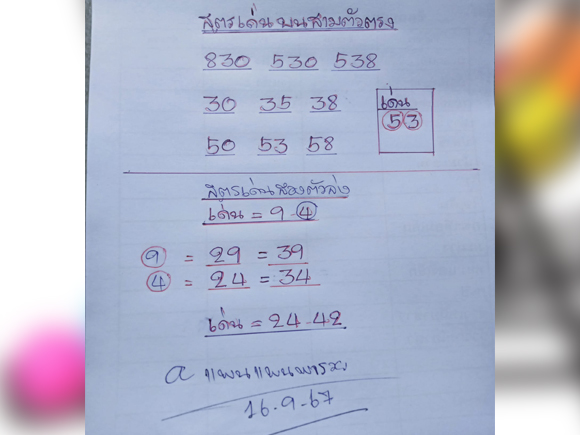 สูตรเด่นบนสามตัวตรง
830 530 538
30 35 38
เด่น
53
50 53 58
สูตรเด่นสองตัวล่าง
เด่น = 9-4
9 = 29 = 39
4 = 24 = 34
เด่น = 24-42
16.9-67